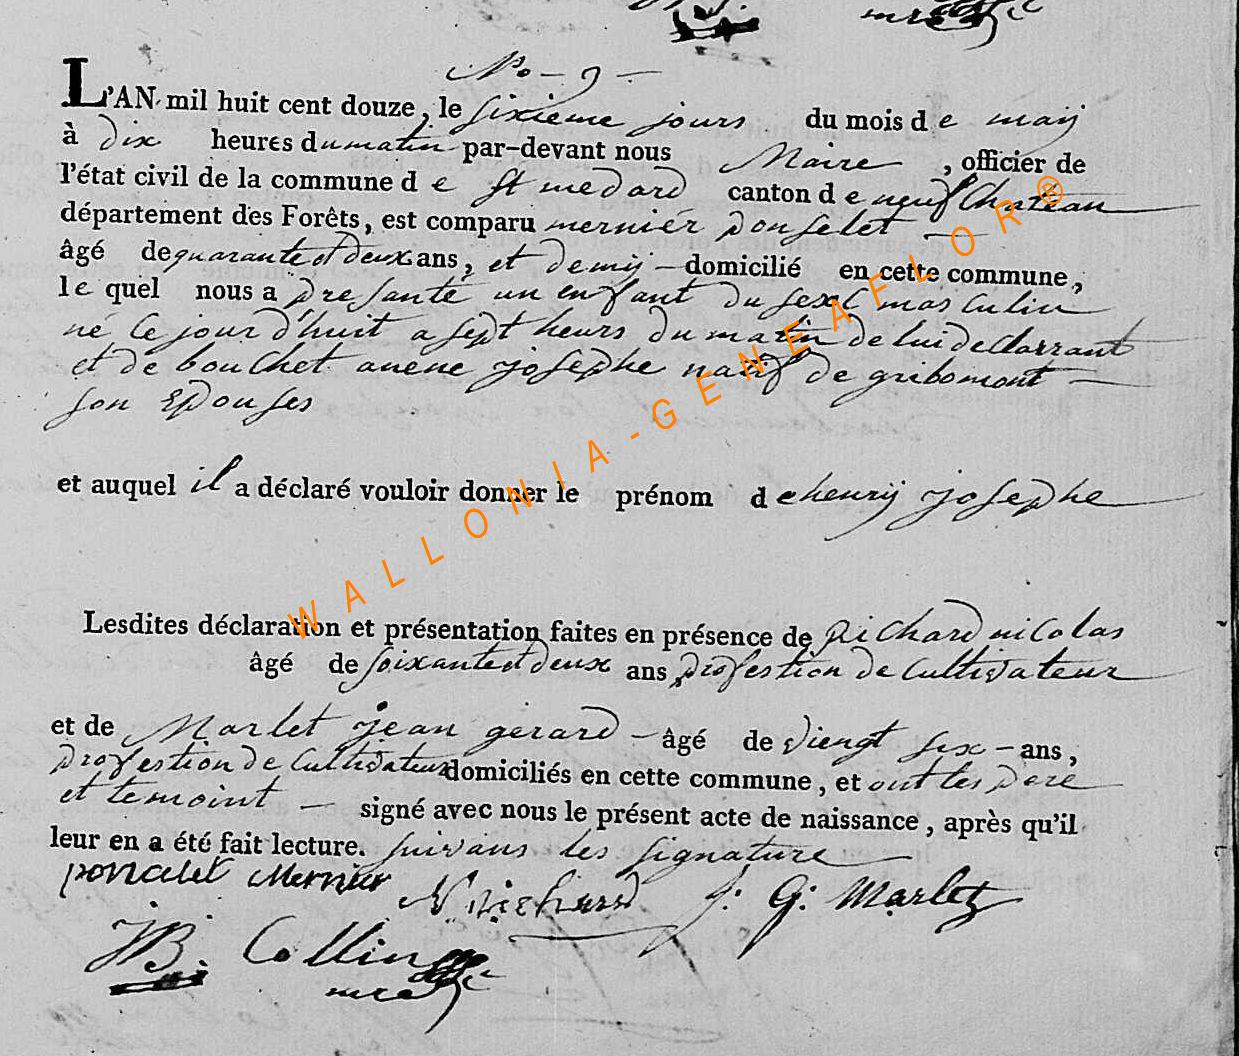 No - 9 -
L'AN mil huit cent douze, le sixieme jours du mois de maij
à dix heures du matin par-devant nous Maire, officier de
l'état civil de la commune de St medard canton de neufChateau
département des Forêts, est comparu mernier ponselet
âgé de quarante et deux ans, et demij - domicilié en cette commune,
lequel nous a presanté un enfant du sexe masculin
né ce jour d'huit a sept heurs du matin de lui declarrant
et de bouchet anene josephe natif de gribomont -
son Epouses
et auquel il a déclaré vouloir donner le prénom de henrij josephe
Lesdites déclaration et présentation faites en présence de Richard nicolas
âgé de soixante et deux ans profestion de Cultivateur
et de Marlet jean gerard - âgé de viengt sex - ans,
profestion de Cultivateur domiciliés en cette commune, et ont les pere
et temoint - signé avec nous le présent acte de naissance, après qu'il
leur en a été fait lecture. suivans les signature
poncelet Mernier N Richard J: G: Marlet
JB. Collin
mre
WALLONIA-GENEAFLOR®